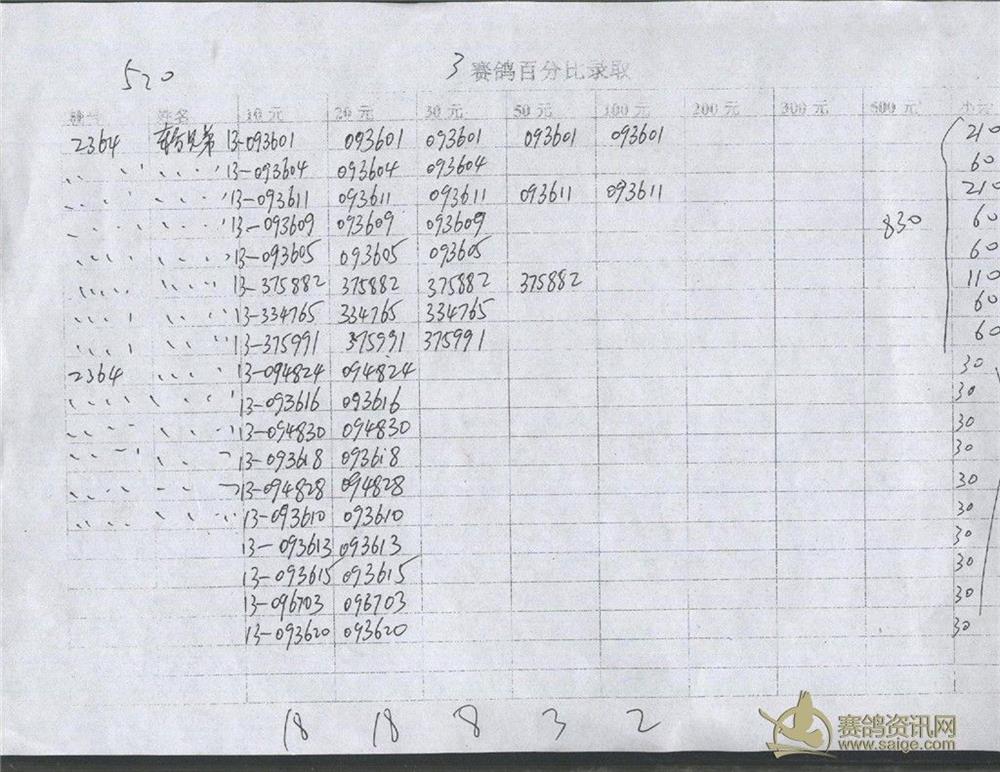 520 3 赛鸽百分比录取
棚号 姓名 10元 20元 30元 50元 100元 200元 300元 500元 小计
2364 兄弟 13-093601 093601 093601 093601 093601 210
〃 〃 13-093604 093604 093604 60
〃 〃 13-093611 093611 093611 093611 093611 210
〃 〃 13-093609 093609 093609 830 60
〃 〃 13-093605 093605 093605 60
〃 〃 13-375882 375882 375882 375882 110
〃 〃 13-334765 334765 334765 60
〃 〃 13-375991 375991 375991 60
2364 〃 13-094824 094824 30
〃 〃 13-093616 093616 30
〃 〃 13-094830 094830 30
〃 〃 13-093618 093618 30
〃 〃 13-094828 094828 30
〃 〃 13-093610 093610 30
13-093613 093613 30
13-093615 093615 30
13-096703 096703 30
13-093620 093620 30
18 18 8 3 2
赛鸽资讯网
www.saige.com